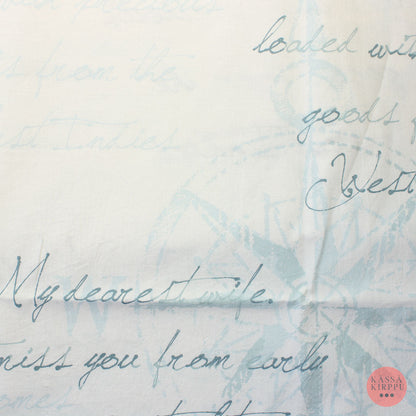 precious
loaded
s from the
goods
st Indies
West
My dearest wife.
miss you from early
KASSA
KIRPPU